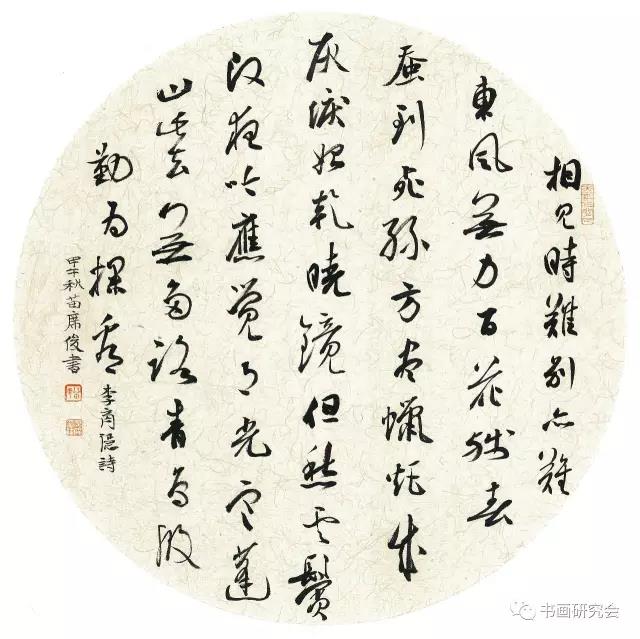 相见時難别亦難
東風無力百花残春
蚕到死絲方尽蠟炬成
灰淚始乾曉鏡但愁雲鬢
改夜吟應觉月光寒蓬
山此去無多路青鸟殷
勤为探看
李商隐詩
甲午秋苗席俊書
书画研究会